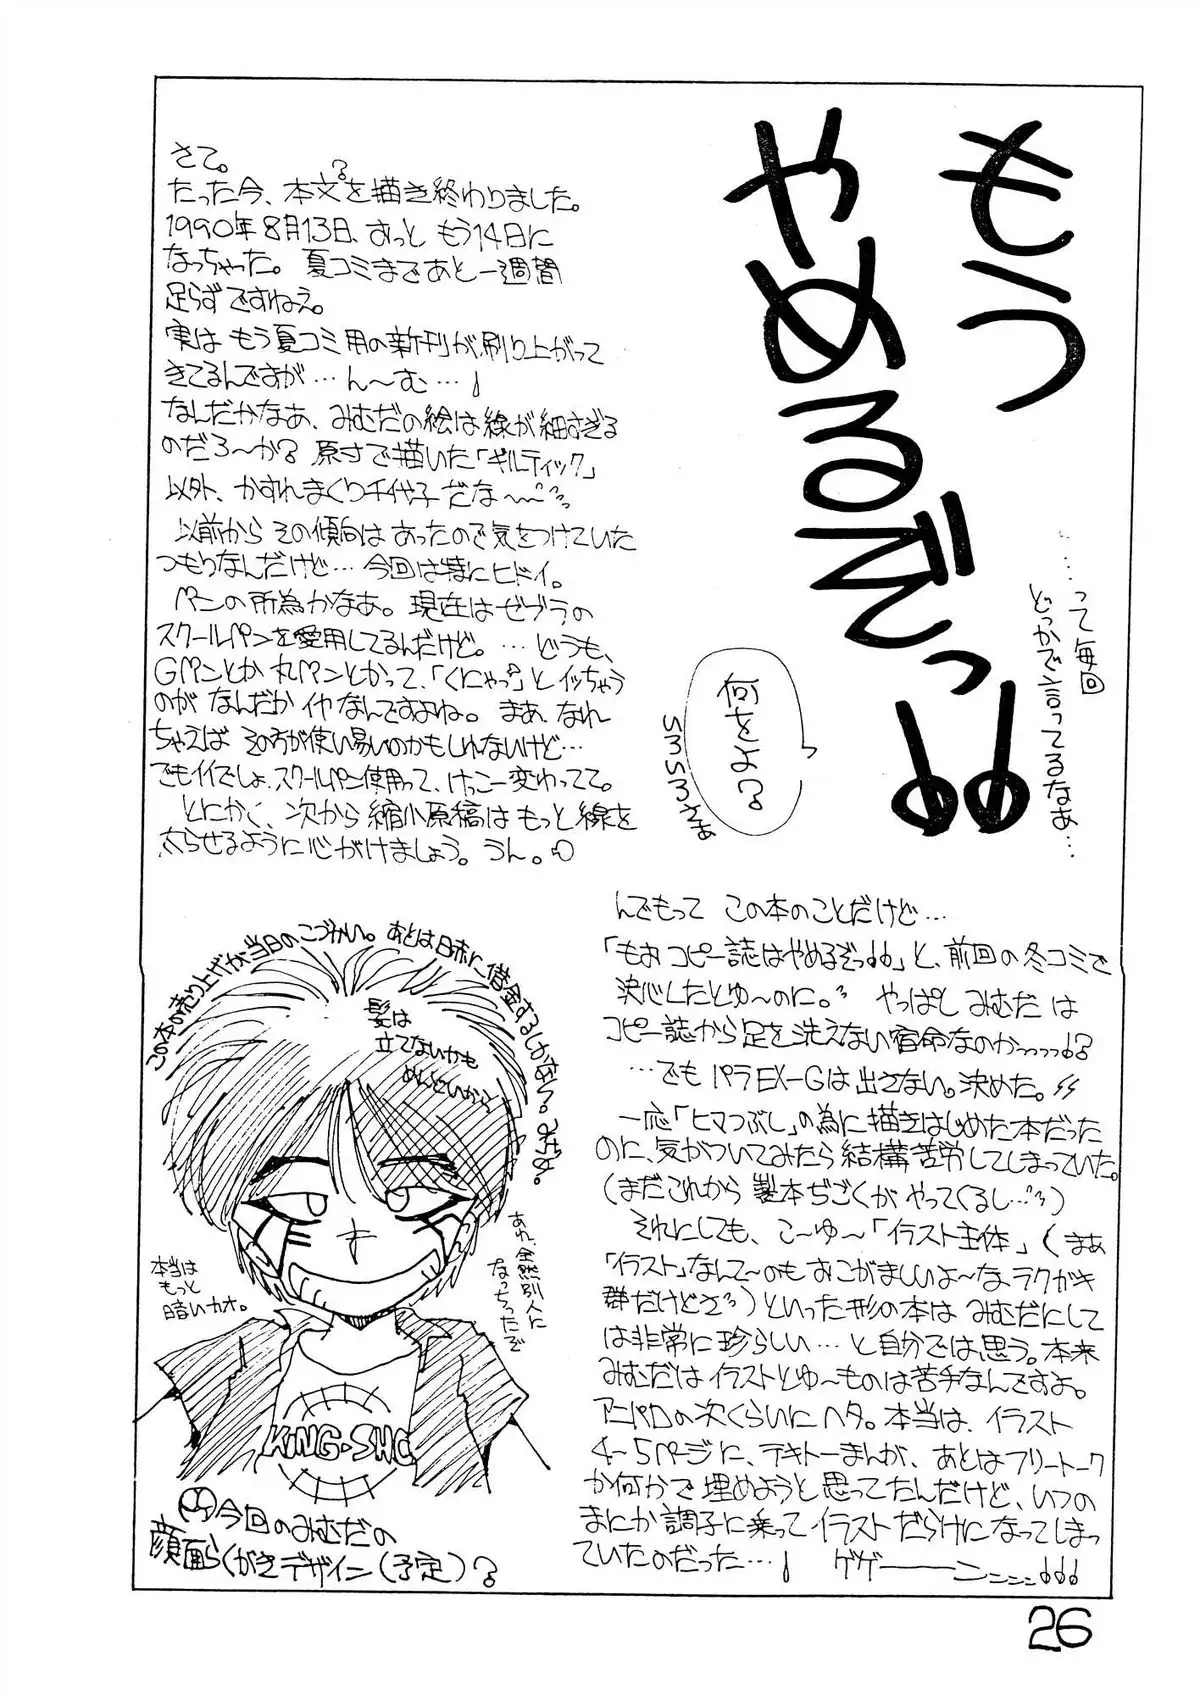 もう
やめるぞっ!!
……って毎回
どっかで言ってるなあ…
何をよ?
さて。
たった今、本文?を描き終わりました。
1990年8月13日、おっと もう14日に
なっちゃった。夏コミまであと一週間
足らずですねえ。
実は もう夏コミ用の新刊が刷り上がって
きてるんですが…ん〜む…!
なんだかなあ、みむだの絵は線が細すぎる
のだろ〜か? 原寸で描いた「ギルティック」
以外、かすれまくり千代子だな〜
以前から その傾向は あったので気をつけていた
つもりなんだけど…今回は特にヒドイ。
ペンの所為かなあ。現在はゼブラの
スクールペンを愛用してるんだけど。…どうも、
Gペンとか丸ペンとかって、「くにゃっ?」とイッちゃう
のが なんだか イヤなんですよね。まあ、なれ
ちゃえば その方が使い易いのかもしれないけど…
でもイイでしょ、スクールペン使用って、けっこー変わってて。
とにかく、次から縮小原稿は もっと線を
太らせるように心がけましょう。うん。
んでもって この本のことだけど…
「もおコピー誌はやめるぞっ!!」と、前回の冬コミで
決心したとゆ〜のに。やっぱし みむだ は
コピー誌から足を洗えない宿命なのかっっっっ!?
…でも パラEX-Gは出さない。決めた。
一応「ヒマつぶし」の為に描きはじめた本だった
のに、気がついてみたら結構苦労してしまっていた。
(まだこれから 製本ぢごくが やってくるし…)
それにしても、こ〜ゆ〜「イラスト主体」(まあ
「イラスト」なんて〜のも おこがましいよ〜な ラクガキ
群だけどさ)といった形の本は みむだにして
は非常に珍しい…と自分では思う。本来
みむだは イラストとゆ〜ものは苦手なんですよ。
アニパロの次くらいにヘタ。本当は、イラスト
4〜5ページに、テキトーまんが、あとはフリートーク
か何かで 埋めようと思ってたんだけど、いつの
まにか調子に乗って イラストだらけになってしまっ
ていたのだった…! ゲゲーーーン!!!
この本の売り上げが当日のこづかい。あとは日赤に借金するしかない。
髪は
立てないかも
めんどいから
本当は
もっと
暗いカオ。
あれ、全然別人に
なっちったで
KING・SHO
今回のみむだの
顔面らくがきデザイン(予定)?
26